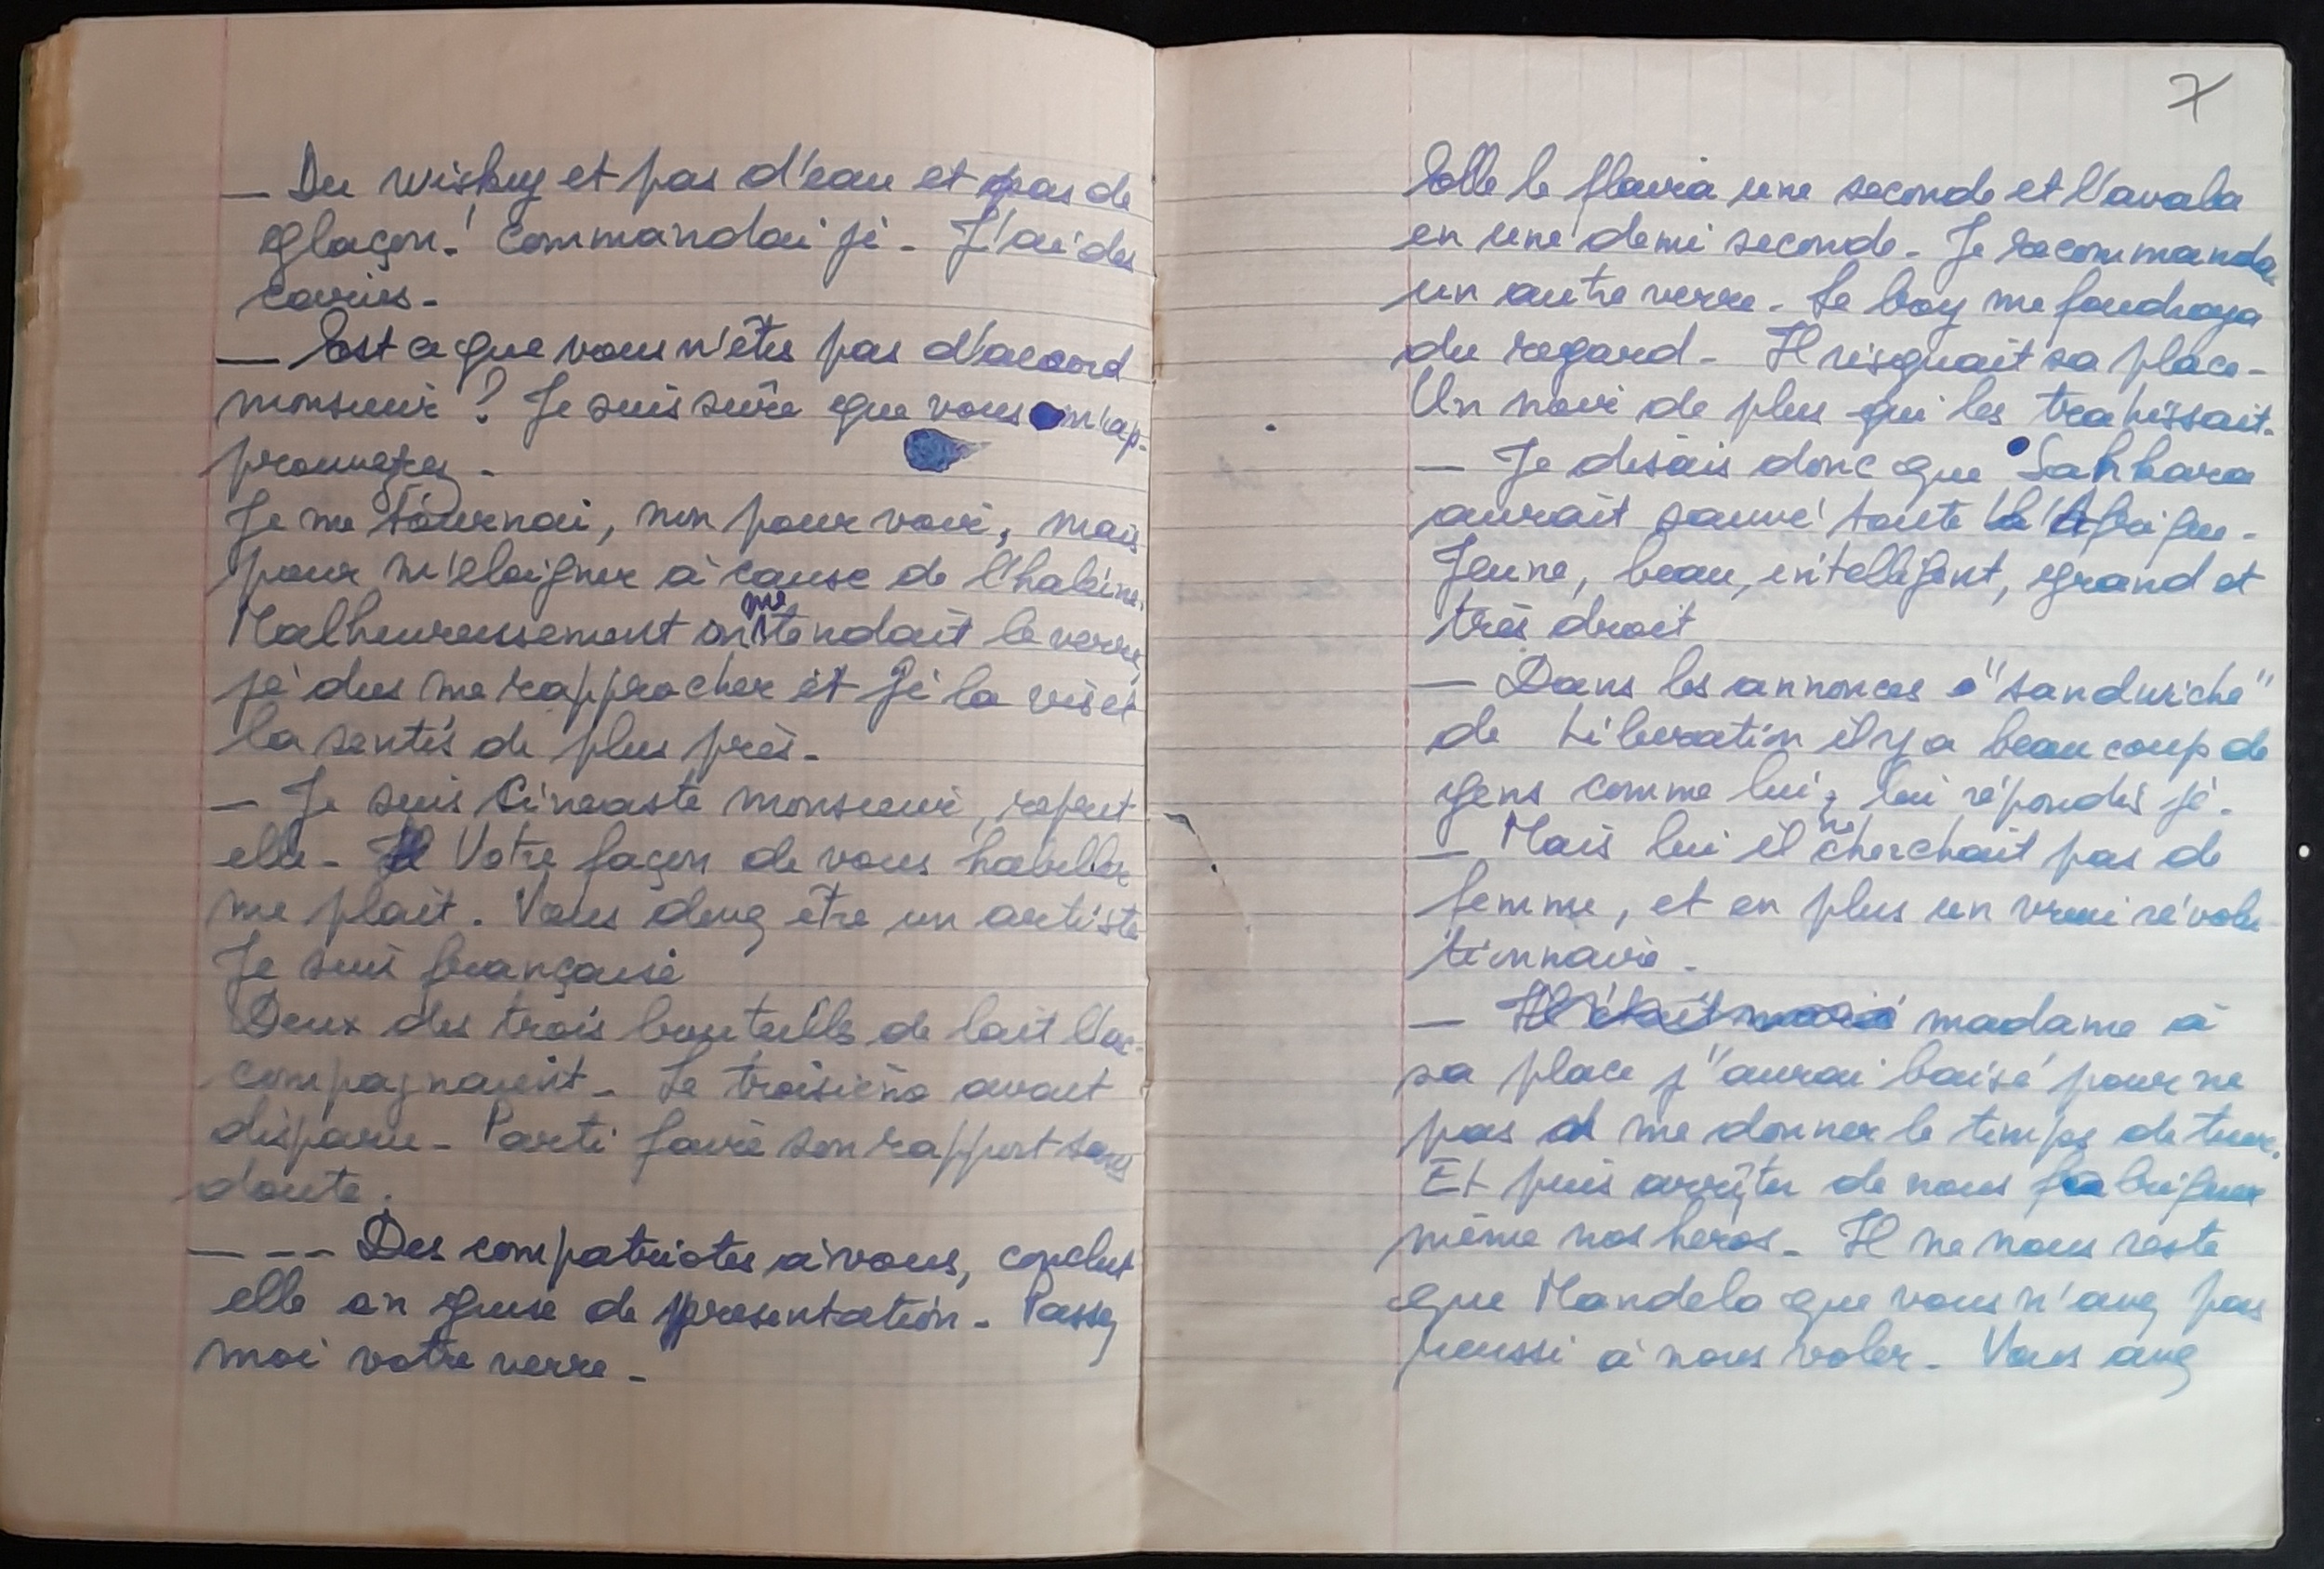 — Du wisky et pas d'eau et pas de
glaçon! Commandai je - J'ai des
caries -
— Est ce que vous n'êtes pas d'accord
monsieur ? Je suis sûre que vous m'ap-
prouvez -
Je me tournai, non pour voir, mais
pour m'eloigner à cause de l'haleine.
Malheureusement on me tendait le verre,
je dus me rapprocher et je la vis et
la sentis de plus près -
— Je suis Cineaste monsieur, reprit
elle - Votre façon de vous habiller
me plait. Vous devez être un artiste
Je suis française
Deux des trois bouteilles de lait l'ac-
compagnaient - Le troisième avait
disparu - Parti faire son rapport sans
doute.
— — — Des compatriotes à vous, conclut
elle en guise de presentation - Passez
moi votre verre -
7
Elle le flaira une seconde et l'avala
en une demi seconde - Je recommandai
un autre verre - Le boy me foudroya
du regard - Il risquait sa place -
Un noir de plus qui les trahissait.
— Je disais donc que Sankara
aurait sauvé toute l'Afrique -
Jeune, beau, intelligent, grand et
très droit
— Dans les annonces "sandwiche"
de Liberation il y a beaucoup de
gens comme lui, lui répondis je -
— Mais lui il ne cherchait pas de
femme, et en plus un vrai révolu
tionnaire -
— Il était marié madame à
sa place j'aurai baisé pour ne
pas me donner le temps de tuer.
Et puis arrêter de nous fabriquer
même nos heros - Il ne nous reste
que Mandela que vous n'avez pas
reussi à nous voler - Vous avez